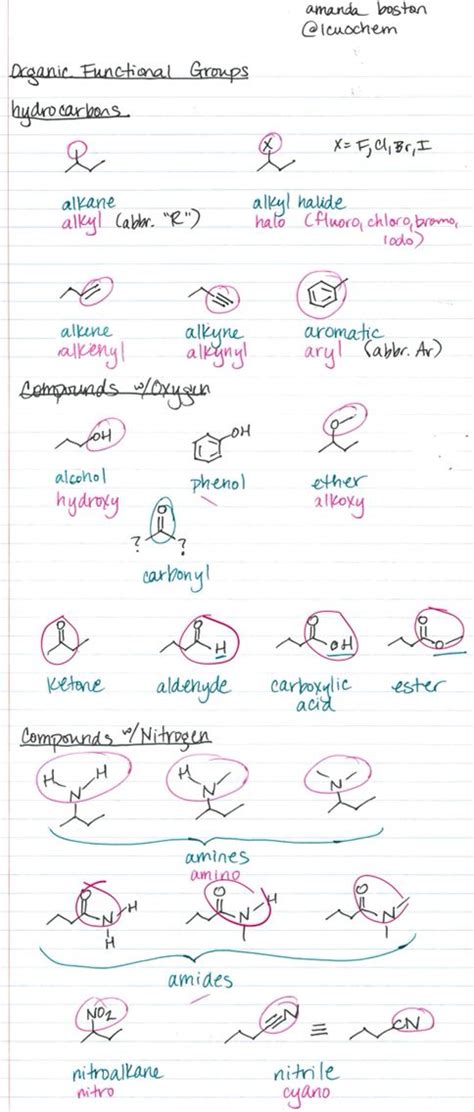 amanda boston
@lcuochem
Organic Functional Groups
hydrocarbons
X
X= F, Cl, Br, I
alkane
alkyl (abbr. "R")
alkyl halide
halo (fluoro, chloro, bromo,
iodo)
alkene
alkenyl
alkyne
alkynyl
aromatic
aryl (abbr. Ar)
Compounds w/Oxygen
OH
OH
O
alcohol
hydroxy
phenol
ether
alkoxy
O
? ?
carbonyl
O
O
H
O
OH
O
O
ketone
aldehyde
carboxylic
acid
ester
Compounds w/Nitrogen
H H
N
H
N
N
amines
amino
O
N H
H
O
N H
O
N
amides
NO2
N
≡
CN
nitroalkane
nitro
nitrile
cyano